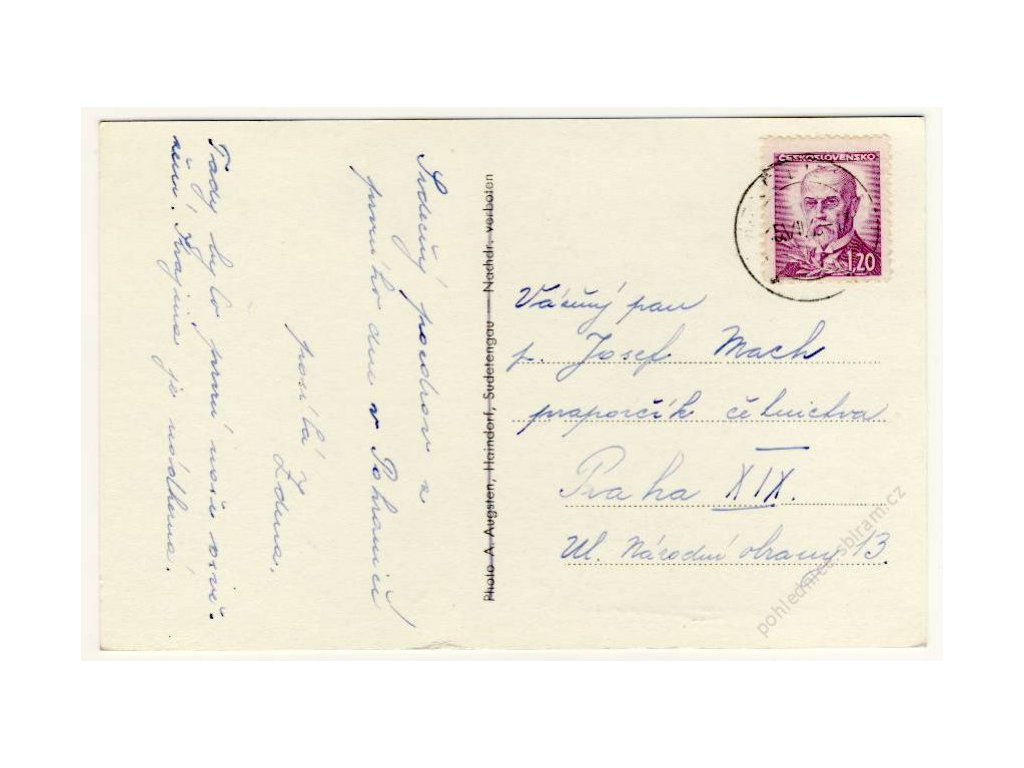 Srdečný pozdrav z
prvního dne v Pohraničí
posílá
Zdena.
Tady bylo první naše osvě-
žení. Krajina je nádherná.
Photo A. Augsten, Haindorf, Sudetengau — Nachdr. verboten
ČESKOSLOVENSKO
1,20
Vážený pan
p. Josef Mach
praporčík četnictva
Praha XIX.
Ul. Národní obrany 13
pohlednice.sbiram.cz